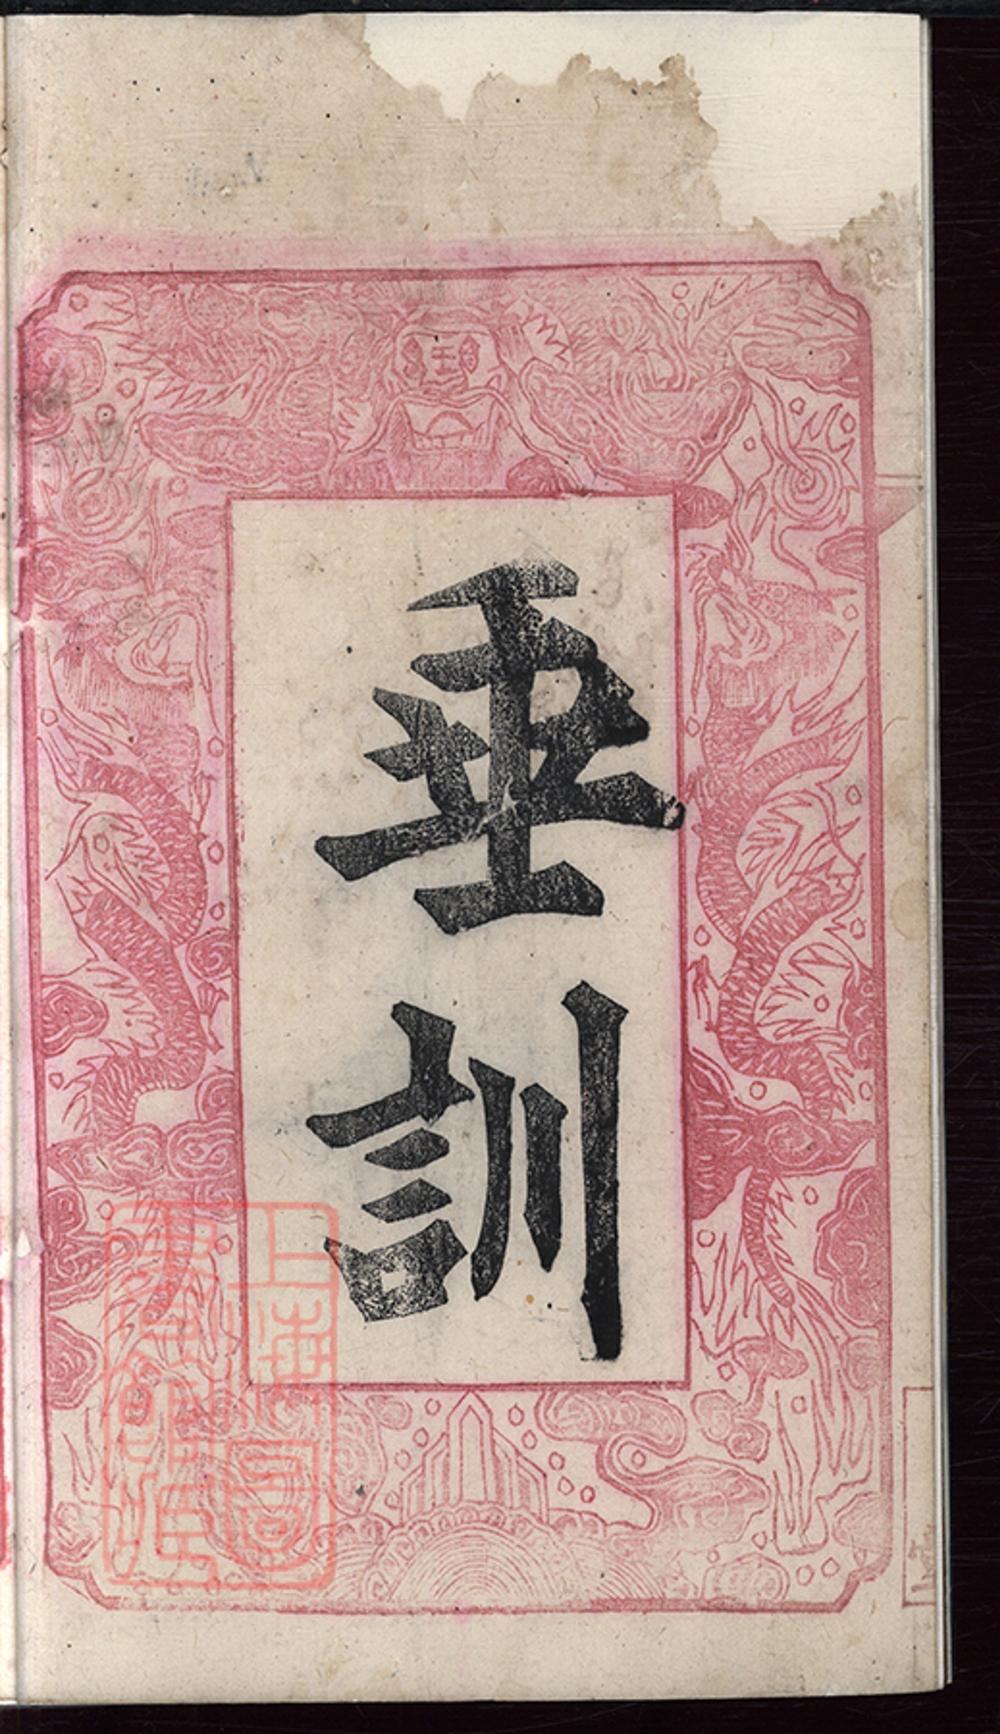 垂訓
上海圖書館藏